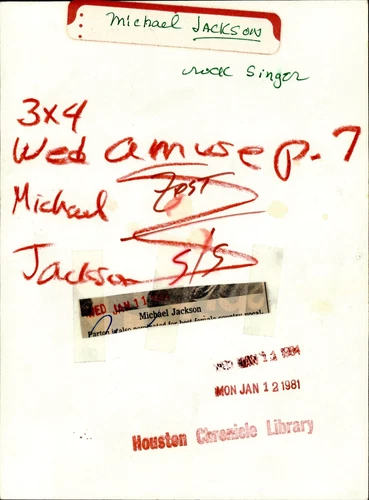 Michael JACKSON
rock Singer
3x4
Wed amuse p. 7
Michael
Post
Jackson
s/s
WED JAN 11
Michael Jackson
Parton is also nominated for best female country vocal.
WED JAN 11 1984
MON JAN 12 1981
Houston Chronicle Library